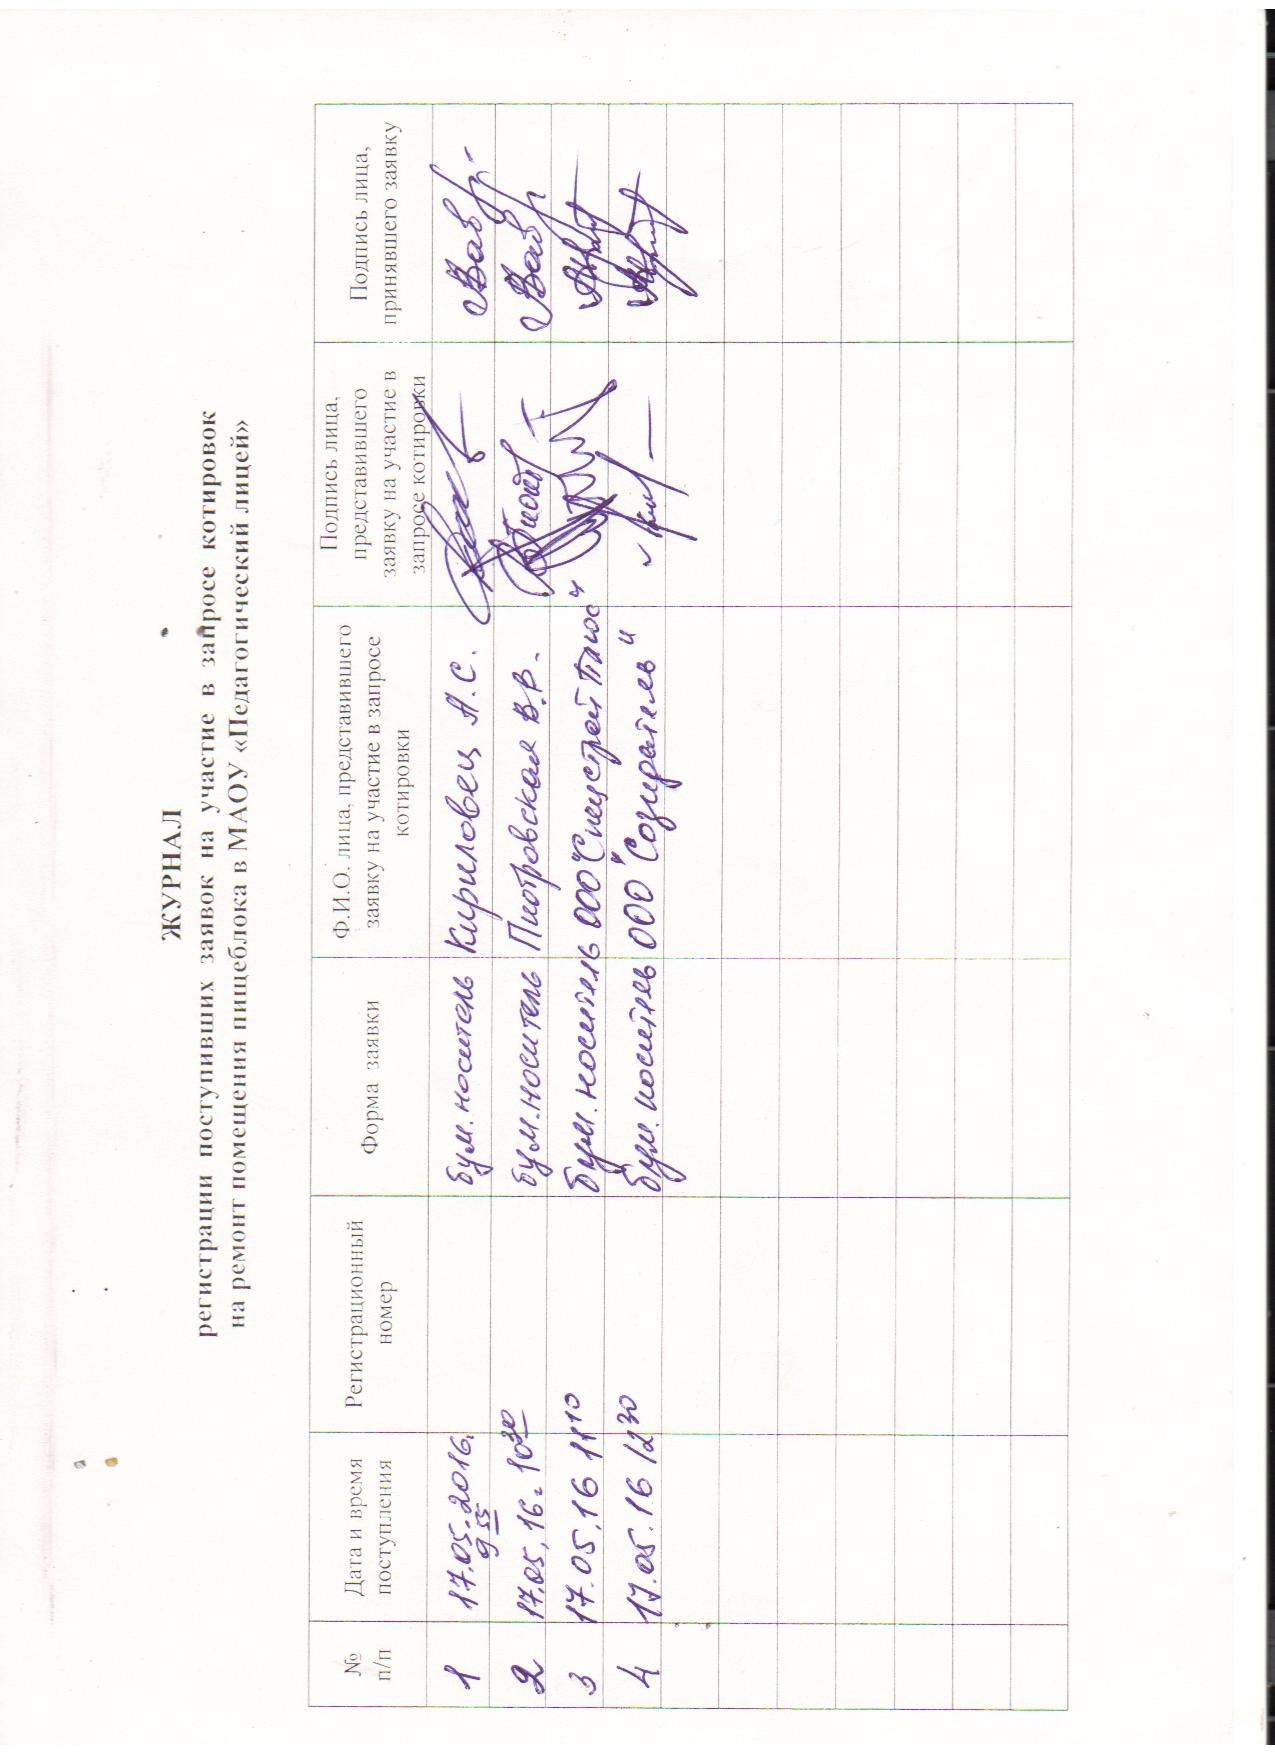 ЖУРНАЛ
регистрации поступивших заявок на участие в запросе котировок
на ремонт помещения пищеблока в МАОУ «Педагогический лицей»
№
п/п
Дата и время
поступления
Регистрационный
номер
Форма заявки
Ф.И.О. лица, представившего
заявку на участие в запросе
котировки
Подпись лица,
представившего
заявку на участие в
запросе котировки
Подпись лица,
принявшего заявку
1 17.05.2016. бум. носитель Кириловец А.С.
9 55
2 17.05.16г. 10 30 бум. носитель Пиотровская В.В.
3 17.05.16 11 10 бум. носитель ООО "Спецстрой Плюс"
4 17.05.16 12 30 бум. носитель ООО "Созидатель"